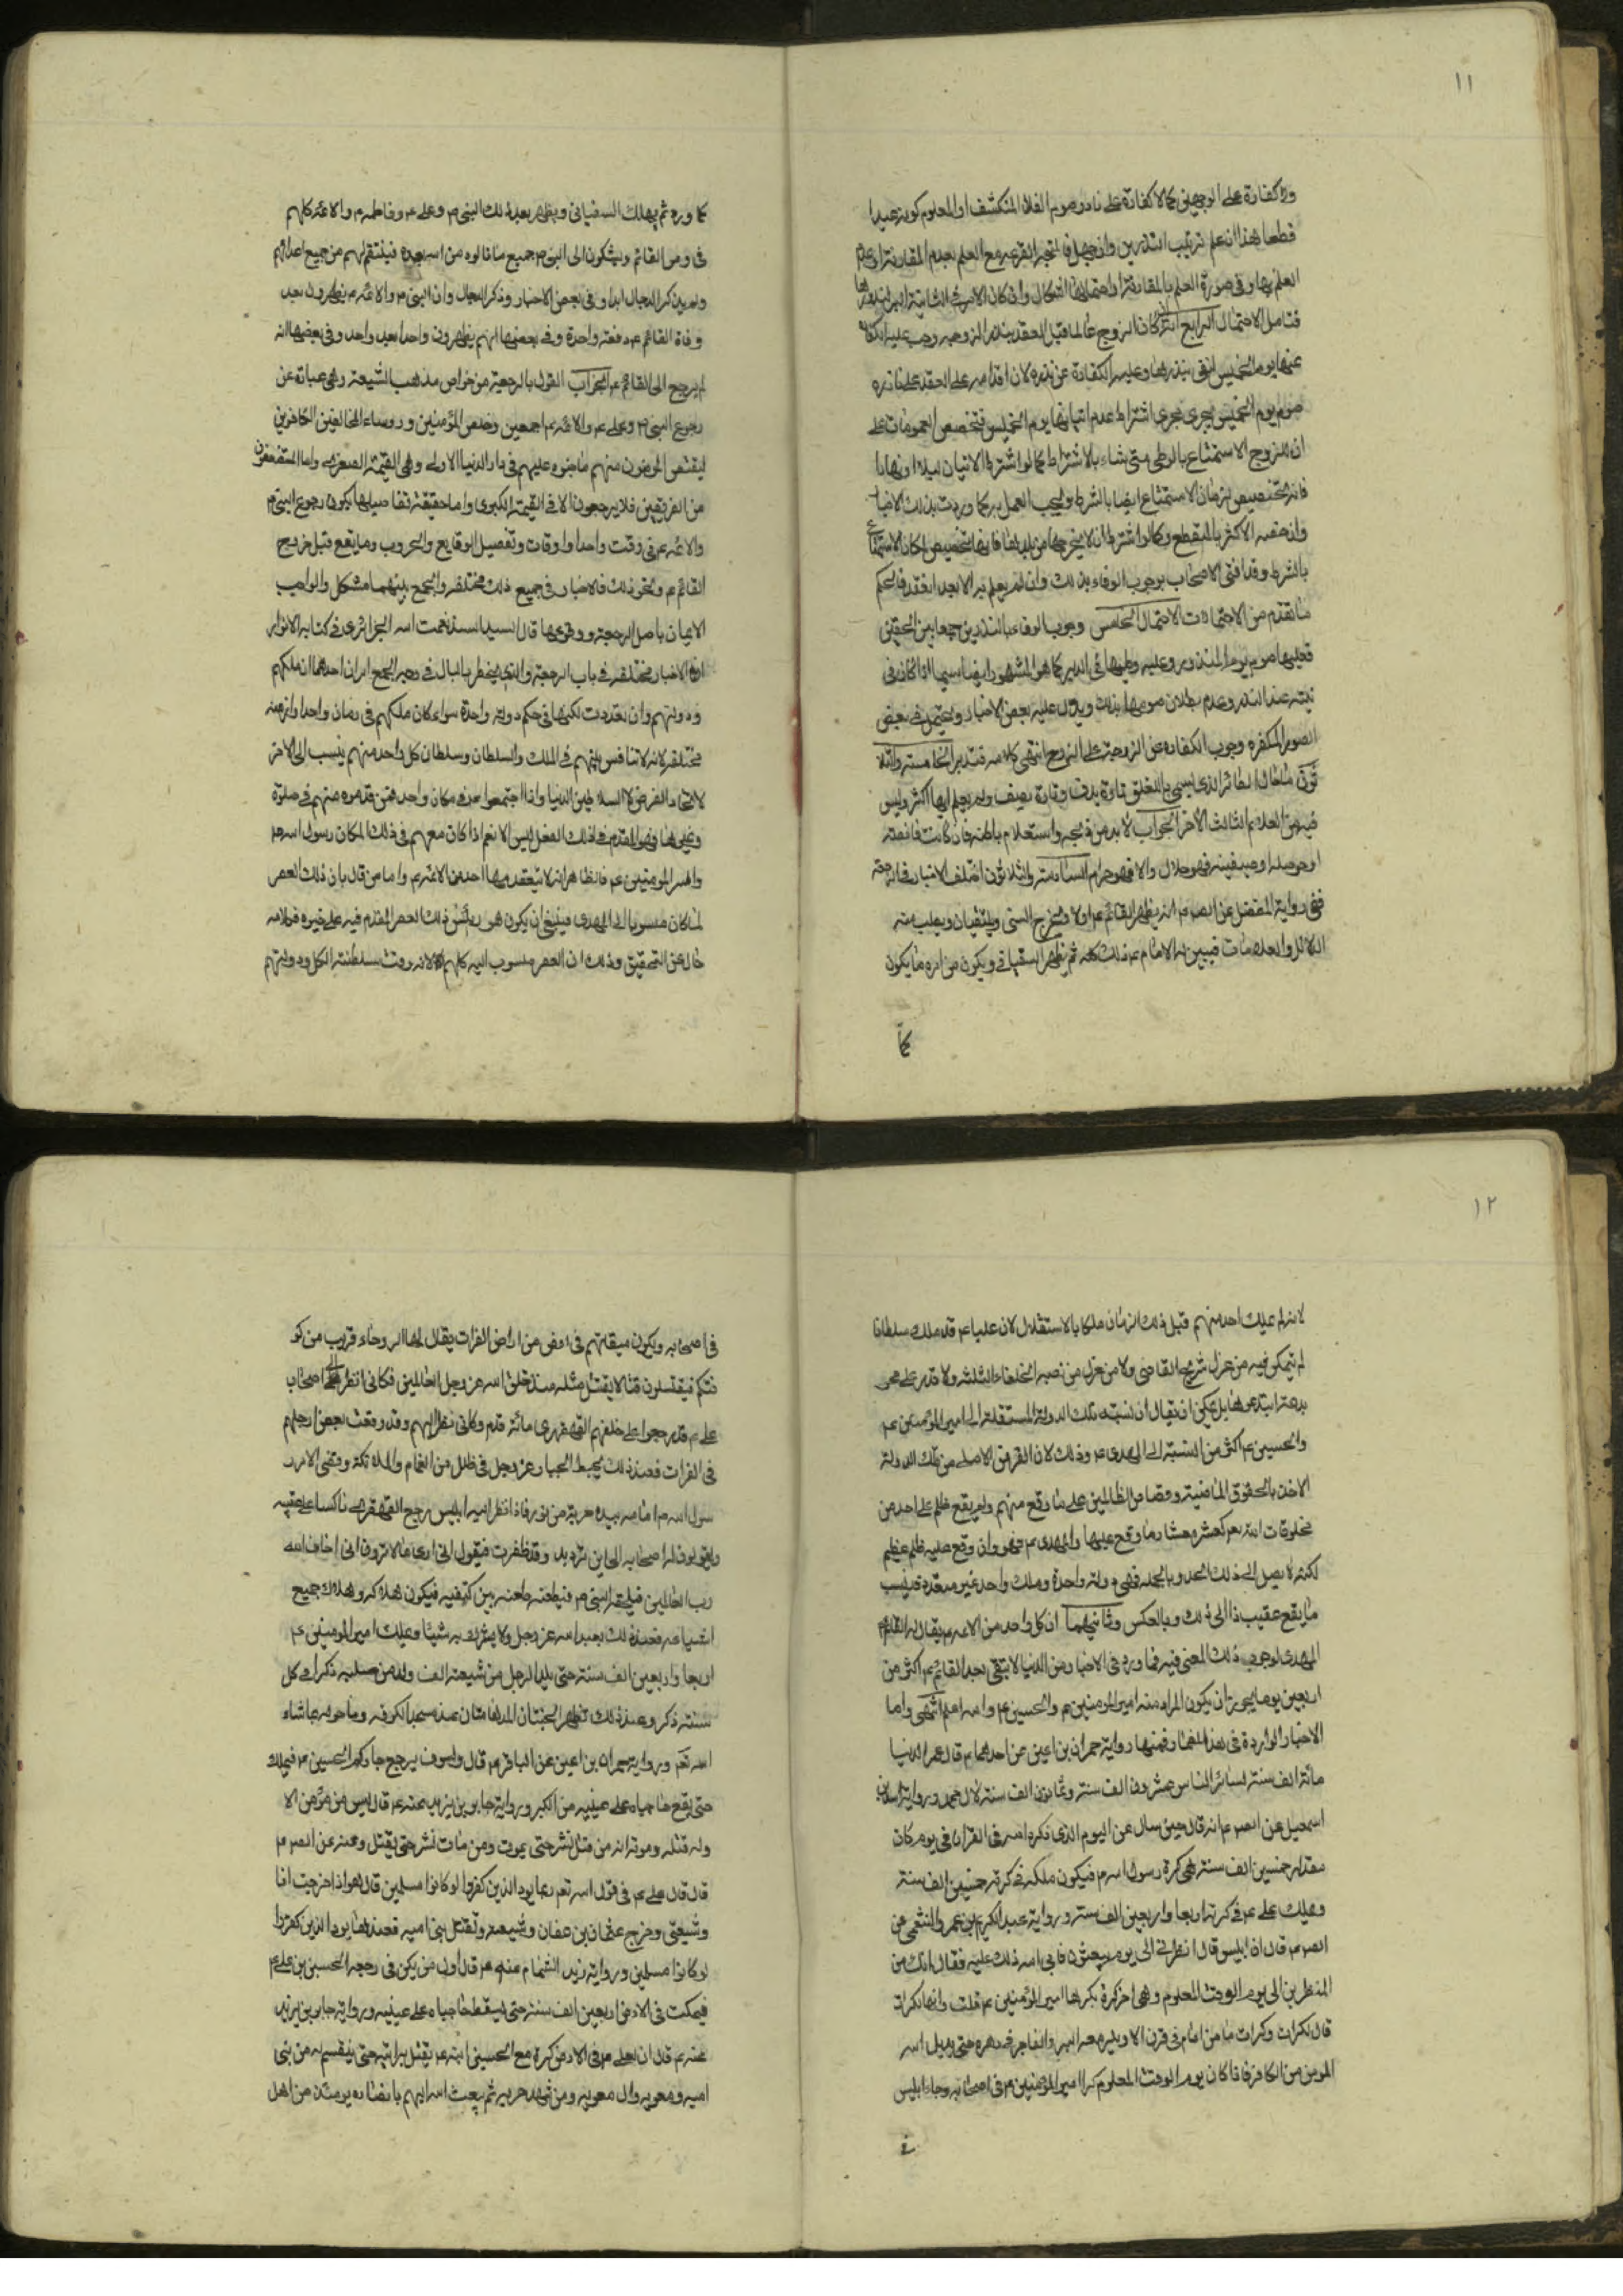 ١١
ولا كفارة على الوجهين كما لا كفارة على ناذر صوم الفلان المنكشف او المعلوم كونه عيدا
قطعا هذا ان علم ترتيب النذرين وان جهل فالمتجه القرعه مع العلم بعدم المقارنة او عدم
العلم بها وفى صورة العلم بالمقارنة او احتمالها اشكال وان كان الاقرب
فتامل الاحتمال الرابع انه ان كان الزوج عالما قبل العقد بنذر الزوجه وجب عليه
عنها يوم الخميس لتفى بنذرها وعليه الكفارة عن نذره لان اقدامه على العقد
صوم يوم الخميس يجرى مجرى اشتراط عدم اتيانها يوم الخميس فتخصص العمومات على
ان للزوج الاستمتاع بالوطى متى شاء بالاشتراط كما لو اشترط الاتيان ليلا او نهارا
فانه تخصيص لزمان الاستمتاع ايضا بالشرط ويجب العمل به كما وردت بذلك الاخبار
وان خصه الاكثر بالمنقطع وكما لو اشترط ان لا يخرجها من بلدها فانها تخصيص لمكان الاستمتاع
بالشرط وقد افتى الاصحاب بوجوب الوفاء بذلك وان لم يعلم به الا بعد العقد فالحكم
ما تقدم من الاحتمالات الاحتمال الخامس وجوب الوفاء بالنذرين جمعا بين الحقين
فعليها صوم يوم المنذور وعليه وطيها فى الدبر كما هو المشهور ايضا سيما اذا كان فى
نيته عند النذر وعدم بطلان صومها بذلك ويدل عليه بعض الاخبار ويحتمل فى بعض
الصور المكفره وجوب الكفاره عن الزوجة على الزوج انتهى كلامه فتدبر الخامسة والثلا
ثون ما حال الطائر الذى يسمى باللقلق تارة يدف وتارة يصف ولم يعلم ايها اكثر وليس
فيه من العلائم الثالث الاخر الجواب لا بد من ذبحه واستعلام باطنه فان كانت قانصة
او حوصله او صيصية فهو حلال والا فهو حرام السادسة والثلاثون اختلف الاخبار فى الرجعة
ففى رواية المفضل عن الصه ع انه يظهر القائم ع اولا ويخرج الحسنى ويلتقيان ويطلب منه
الدلائل والعلامات فيبين له الامام ع ذلك كله ثم يظهر السفيانى ويكون من امره ما يكون
كما
كما ورد ثم يهلك السفيانى ويظهر بعد ذلك النبى ص وعلى ع وفاطمه ع والائمة كلهم
فى زمن القائم ويشكون الى النبى ص جميع ما نالوه من امته بعده فينتقم لهم من جميع اعدائهم
ولم يذكر الدجال ابدا وفى بعض الاخبار وذكر الدجال وان النبى ص والائمه ع يظهرون بعد
وفاة القائم ع دفعة واحدة وفى بعضها انهم يظهرون واحدا بعد واحد وفى بعضها انه
لم يرجع الى القائم ع الجواب القول بالرجعة من خواص مذهب الشيعة وهى عبارة عن
رجوع النبى ص وعلى ع والائمه ع اجمعين وخلص المؤمنين ورؤساء المخالفين الكافرين
ليقتص المؤمنون منهم ما جنوه عليهم فى دار الدنيا الاولى وهى القيمة الصغرى واما المستضعفون
من الفريقين فلا يرجعون الا فى القيمة الكبرى واما حقيقة تفاصيلها بكون رجوع النبى ص
والائمه ع فى وقت واحد او اوقات وتفصيل الوقايع والحروب وما يقع قبل خروج
القائم ع ونحو ذلك فالاخبار فى جميع ذلك مختلفه والجمع بينهما مشكل والواجب
الايمان باصل الرجعة ووقوعها قال السيد السند نعمت الله الجزائرى فى كتابه الانوار
ان الاخبار مختلفه فى باب الرجعة والذى يخطر بالبال فى وجه الجمع امران احدهما ان ملكهم
ودولتهم وان تعددت لكنها فى حكم دولة واحدة سواء كان ملكهم فى زمان واحد او ازمنة
مختلفه لانه لا تنافس بينهم فى الملك والسلطان وسلطان كل واحد منهم ينسب الى الاخر
لاتحاد الغرض لا كالسلاطين الدنيا واذا اجتمعوا ع فى مكان واحد فمن قدموه منهم فى صلوة
وغيرها فهو المقدم فى ذلك الفعل ليس الا نعم اذا كان معهم فى ذلك المكان رسول الله ص
وامير المومنين ع فالظاهر انه لا يتقدمها احد من الائمه ع واما من قال بان ذلك العصر
لما كان منسوبا الى المهدى فينبغى ان يكون هو رئيس ذلك العصر المقدم فيه على غيره فكلامه
خال عن التحقيق وذلك ان العصر منسوب اليه كلهم لانه وقت سلطنة الكل ودولتهم
١٢
لانه لم يملك احد منهم قبل ذلك الزمان ملكا بالاستقلال لان عليا ع قد ملك سلطانا
لم يتمكن فيه من عزل شريح القاضى ولا من عزل من نصبه الخلفاء الثلثه ولا قدر على محو
بدعة ابتدعوها بل يمكن ان يقال ان نسبة تلك الدولة المستقلة الى امير المؤمنين ع
والحسين ع اكثر من النسبة الى المهدى ع وذلك لان الغرض الاصلى من تلك الدولة
الاخذ بالحقوق الماضية وقصاص الظالمين على ما وقع منهم ولم يقع ظلم على احد من
مخلوقات الله تعم كعشر معشار ما وقع عليها والمهدى ع فهو وان وقع عليه ظلم عظيم
لكنه لا يصل الى ذلك الحد وبالجمله فهى دولة واحدة وملك واحد غير متعدد فينسب
ما يقع عقيب ذا الى ذلك وبالعكس وثانيهما ان كل واحد من الائمه ع يقال له القائم
المهدى لوجود ذلك المعنى فيه فما ورد فى الاخبار من الدنيا لا تبقى بعد القائم ع اكثر من
اربعين يوما يجوز ان يكون المراد منه امير المومنين ع والحسين ع والله اعلم انتهى واما
الاخبار الواردة فى هذا المضمار فمنها رواية حمران بن اعين عن احدهما ع قال عمر الدنيا
مائة الف سنة لسائر الناس عشرون الف سنة وثمانون الف سنة لآل محمد ورواية
اسمعيل عن الصه ع انه قال حين سال عن اليوم الذى ذكره الله فى القران فى يوم كان
مقداره خمسين الف سنة هى كرة رسول الله ص فيكون ملكه فى كرته خمسين الف سنة
ويملك على ع فى كرته اربعا واربعين الف سنة ورواية عبد الكريم بن عمرو الخثعمى عن
الصه ع قال ان ابليس قال انظرنى الى يوم يبعثون فابى الله ذلك عليه فقال انك من
المنظرين الى يوم الوقت المعلوم وهى اخر كرة يكرها امير المؤمنين ع قلت وانها لكرات
قال لكرات وكرات ما من امام فى قرن الا ويكر معه البر والفاجر فى دهره حتى يديل الله
المومن من الكافر فاذا كان يوم الوقت المعلوم كر امير المؤمنين ع فى اصحابه وجاء ابليس
فى
فى اصحابه ويكون ميقاتهم فى ارض من اراضى الفرات يقال لها الروحاء قريب من كو
فتكم فيقتتلون قتالا لم يقتتل مثله منذ خلق الله عز وجل العالمين فكانى انظر الى اصحاب
على ع قد رجعوا على خلفهم القهقرى مائة قدم وكانى انظر اليهم وقد وقعت بعض ارجلهم
فى الفرات فعند ذلك يهبط الجبار عز وجل فى ظلل من الغمام والملائكة وقضى الامر ر
سول الله ص امامه بيده حربة من نور فاذا نظر اليه ابليس رجع القهقرى ناكسا على عقبيه
ويقولون له اصحابه الى اين تريد وقد ظفرت فيقول انى ارى ما لا ترون انى اخاف الله
رب العالمين فيلحقه النبى ص فيطعنه طعنه بين كتفيه فيكون هلاكه وهلاك جميع
اشياعه فعند ذلك يعبد الله عز وجل ولا يشرك به شيئا ويملك امير المومنين ع
اربعا واربعين الف سنة حتى يلد الرجل من شيعته الف ولد من صلبه ذكرا فى كل
سنة ذكر وعند ذلك تظهر الجنتان المدهامتان عند مسجد الكوفه وما حوله بما شاء
الله تعم ورواية حمران بن اعين عن الباقر ع قال ولسوف يرجع جاركم الحسين ع فيملك
حتى يقع حاجباه على عينيه من الكبر ورواية جابر بن يزيد عنه ع قال ليس من مؤمن الا
وله قتله وموته انه من قتل نشر حتى يموت ومن مات نشر حتى يقتل وعنه عن الصه ع
قال قال على ع فى قول الله تعم ربما يود الذين كفروا لو كانوا مسلمين قال هو اذا خرجت انا
وشيعتى وخرج عثمان بن عفان وشيعته ونقتل بنى اميه فعندها يود الذين كفروا
لو كانوا مسلمين ورواية زيد الشحام عنه ع قال اول من يكر فى رجعه الحسين بن على ع
فيمكث فى الارض اربعين الف سنة حتى يسقط حاجباه على عينيه ورواية جابر بن يزيد
عنه ع قال ان لعلى ع فى الارض كرة مع الحسين ابنه ع يقبل برايته حتى ينتقم له من بنى
اميه ومعويه وال معويه ومن شهد حربه ثم يبعث الله اليهم بانصاره يومئذ من اهل